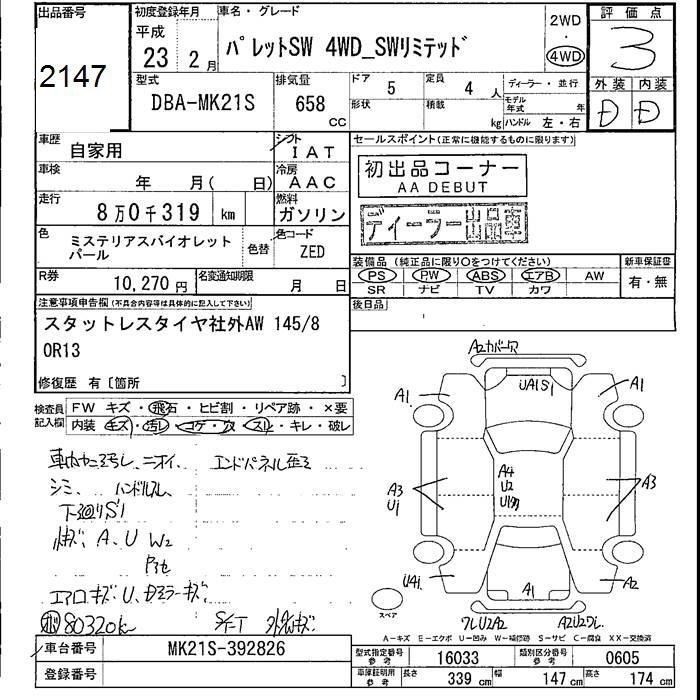 出品番号
2147
初度登録年月
平成
23 2 月
車名・グレード
パレットSW 4WD_SWリミテッド
2WD
・
4WD
評価点
3
外装 内装
D D
型式
DBA-MK21S
排気量
658
CC
ドア 5
定員 4 人
形状
積載 kg
ディーラー・並行
モデル年式 年
ハンドル 左・右
車歴
自家用
シフト
IAT
車検
年 月( 日)
冷房
AAC
走行
8万0千319 km
燃料
ガソリン
色
ミステリアスバイオレット
パール
色替
色コード
ZED
R券
10,270円
名変通知期限
月 日
セールスポイント(正常に機能するものに限ります)
初出品コーナー
AA DEBUT
ディーラー出品車
装備品(純正品に限り○をつけてください)
新車保証書
PS PW ABS エアB AW
SR ナビ TV カワ
有・無
後日品
注意事項申告欄(不具合内容等は具体的に記入して下さい)
スタットレスタイヤ社外AW 145/8
0R13
修復歴 有〔箇所 〕
検査員
記入欄
FW キズ・飛石・ヒビ割・リペア跡・×要
内装 キズ・汚レ・コゲ・穴・スレ・キレ・破レ
シミ、ハンドルスレ
下廻りS1
A、U W2
エアロキズU、ドアミラーキズ
80320k
A2カバーワレ
UA1S1
A1 A1
A4
U2
A3
U1
A3
UA1
A1
A2
ワレU2A2
A2U2ワレ
スペア
A-キズ E-エクボ U-凹み W-補修跡 S-サビ C-腐食 XX-交換済
車台番号
MK21S-392826
登録番号
型式指定番号
参考
16033
類別区分番号
参考
0605
車庫証明用
参考
長さ 339 cm
幅 147 cm
高さ 174 cm